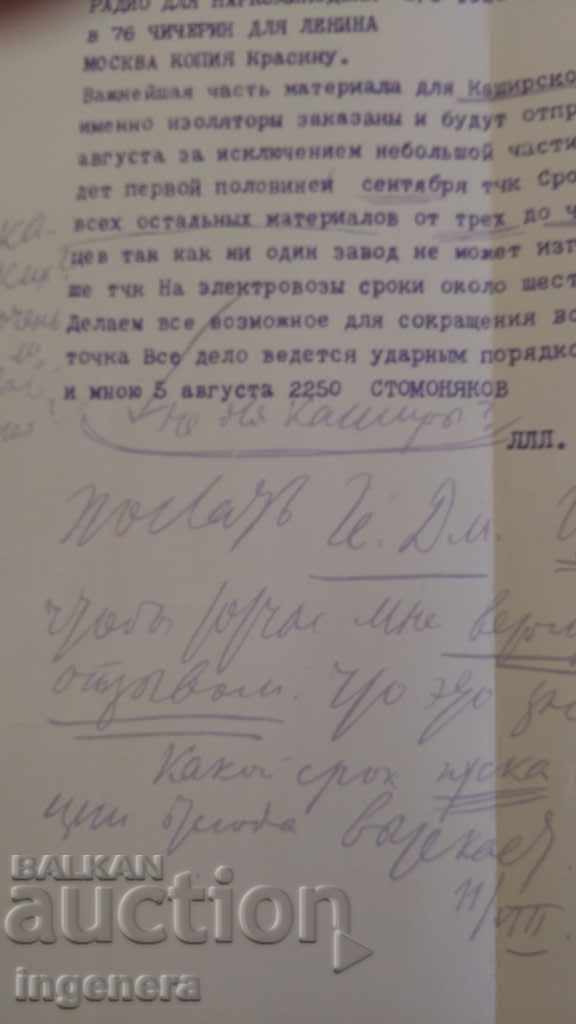 РАДИО ДЛЯ
в 76 ЧИЧЕРИН ДЛЯ ЛЕНИНА
МОСКВА КОПИЯ Красину.
Важнейшая часть материала для Каширско
именно изоляторы заказаны и будут отпр
августа за исключением небольшой части
дет первой половиней сентября тчк Сро
всех остальных материалов от трех до ч
цев так как ни один завод не может изг
ше тчк На электровозы сроки около шест
Делаем все возможное для сокращения вс
точка Все дело ведется ударным порядко
и мною 5 августа 2250 СТОМОНЯКОВ
очень
Не для Каширы?
ЛЛЛ.
Послать И. Дм.
чтобы тотчас мне верну
отзывом. Что это зна
Какой срок пуска
ции отсюда вытекает?
11/VIII
BALKAN
auction
ingenera